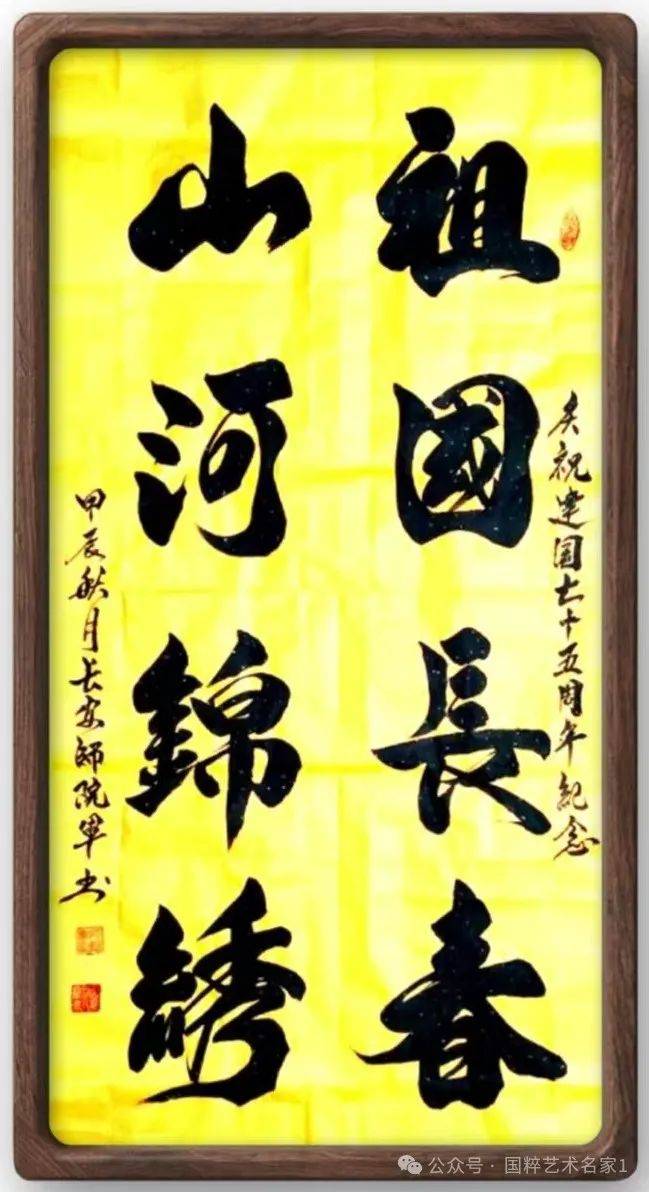 祖國長春
山河錦綉
庆祝建国七十五周年纪念
甲辰秋月长安師院军书
公众号·国粹艺术名家1